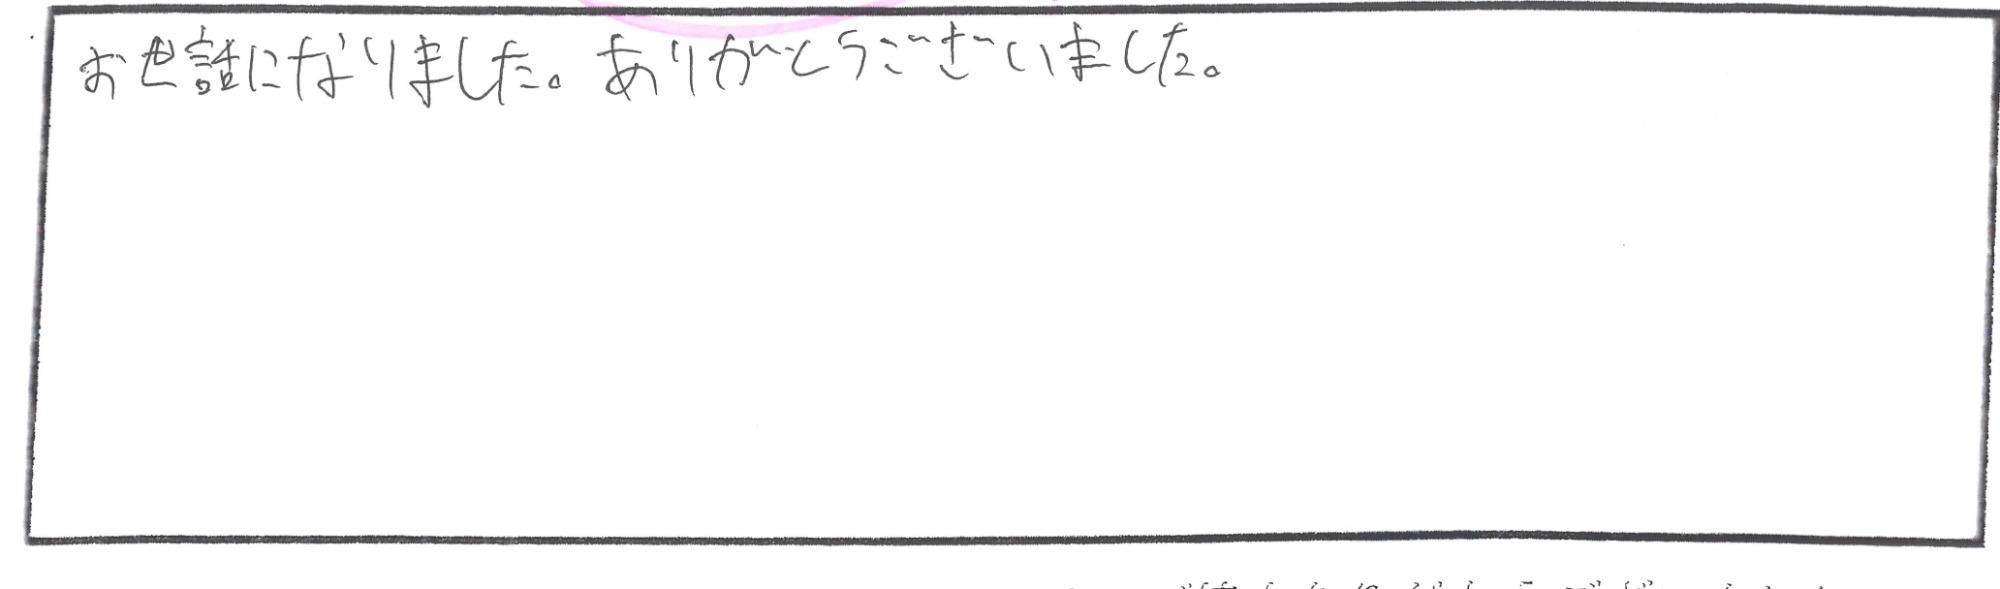 お世話になりました。ありがとうございました。